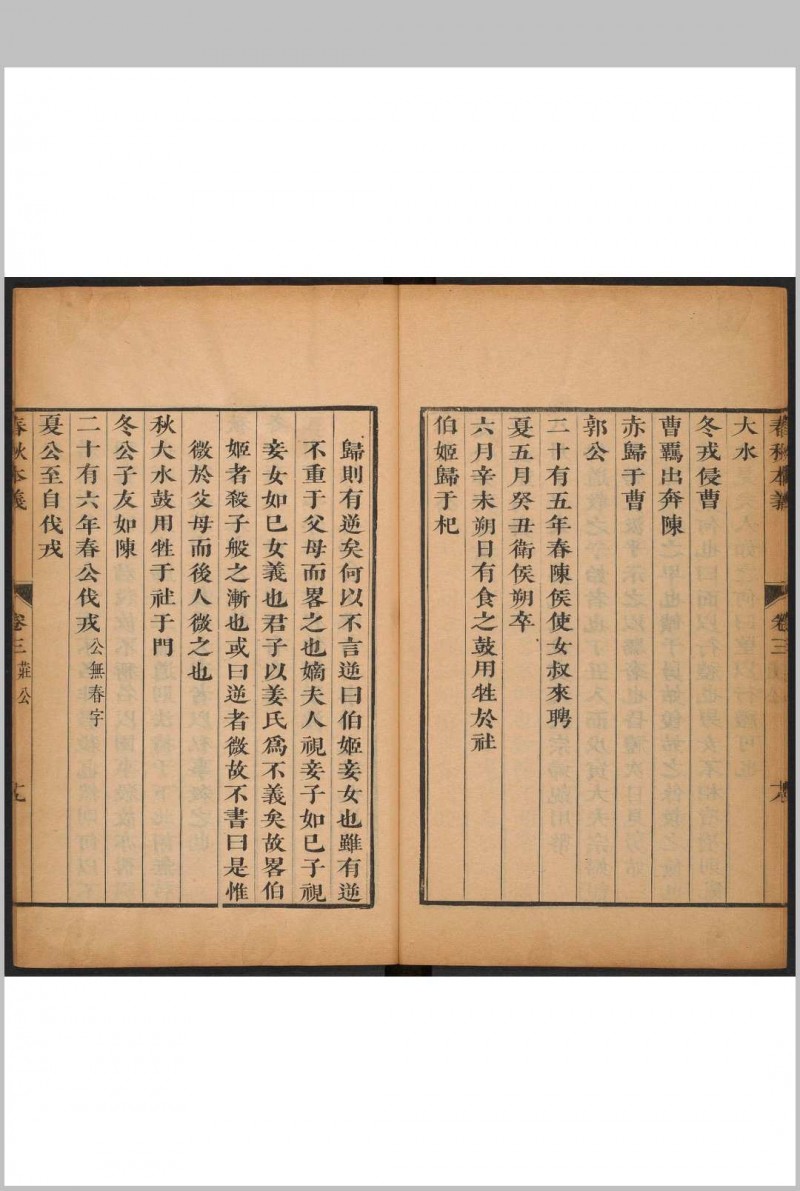 春秋本義
卷三
大水
冬戎侵曹
曹羈出奔陳
赤歸于曹
郭公
二十有五年春陳侯使女叔來聘
夏五月癸丑衛侯朔卒
六月辛未朔日有食之鼓用牲於社
伯姬歸于杞
歸則有逆矣何以不言逆曰伯姬妾女也雖有逆
不重于父母而畧之也嫡夫人視妾子如巳子視
妾女如巳女義也君子以姜氏爲不義矣故畧伯
姬者殺子般之漸也或曰逆者微故不書曰是惟
微於父母而後人微之也
秋大水鼓用牲于社于門
冬公子友如陳
二十有六年春公伐戎公無春字
夏公至自伐戎
春秋本義
卷三 莊公
十九